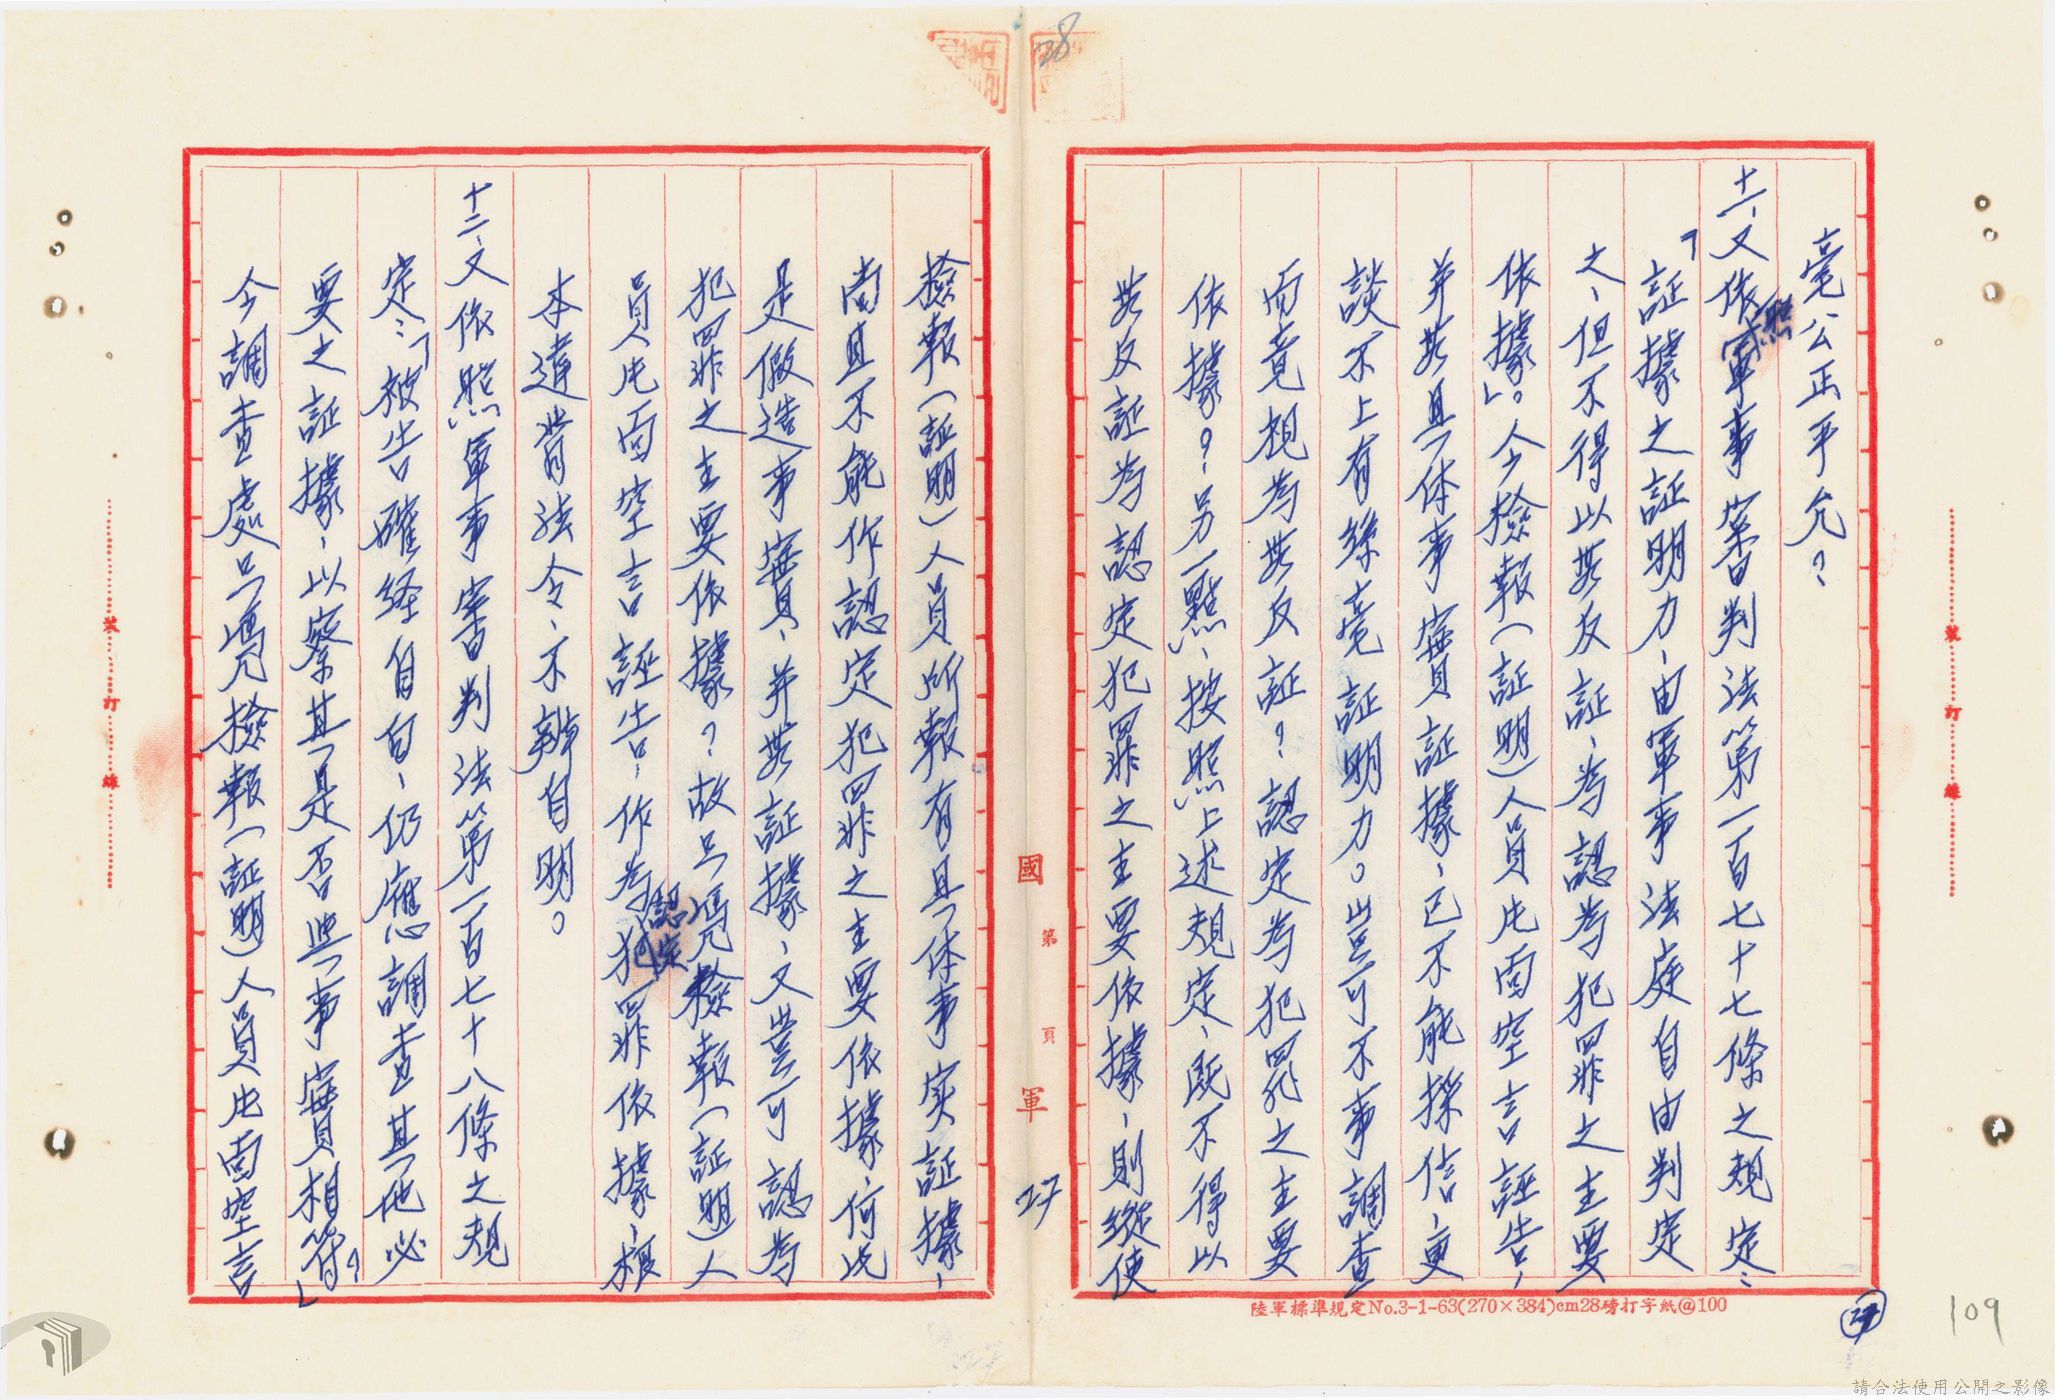 毫公正平允?
十一、又依照軍事審判法第一百七十七條之規定:
「証據之証明力,由軍事法庭自由判定
之,但不得以無反証,為認為犯罪之主要
依據」。今檢報(証明)人員片面空言誣告,
並無具体事實証據,已不能採信,更
談不上有絲毫証明力。豈可不事調查
而竟視為無反証?認定為犯罪之主要
依據?另一點,按照上述規定,既不得以
無反証為認定犯罪之主要依據,則縱使
檢報(証明)人員所報有具体事实証據,
尚且不能作認定犯罪之主要依據,何况
是假造事實,並無証據,又豈可認為
犯罪之主要依據?故只憑檢報(証明)人
員片面空言誣告,作為認定犯罪依據,根
本違背法令,不辯自明。
十二、又依照軍事審判法第一百七十八條之規
定:「被告雖經自白,仍應調查其他必
要之証據,以察其是否與事實相符」?
今調查處只憑檢報(証明)人員片面空言
國 第 頁 軍
27
28
陸軍標準規定No.3-1-63(270×384)cm28磅打字紙@100
27
109
裝 訂 線
裝 訂 線
請合法使用公開之影像